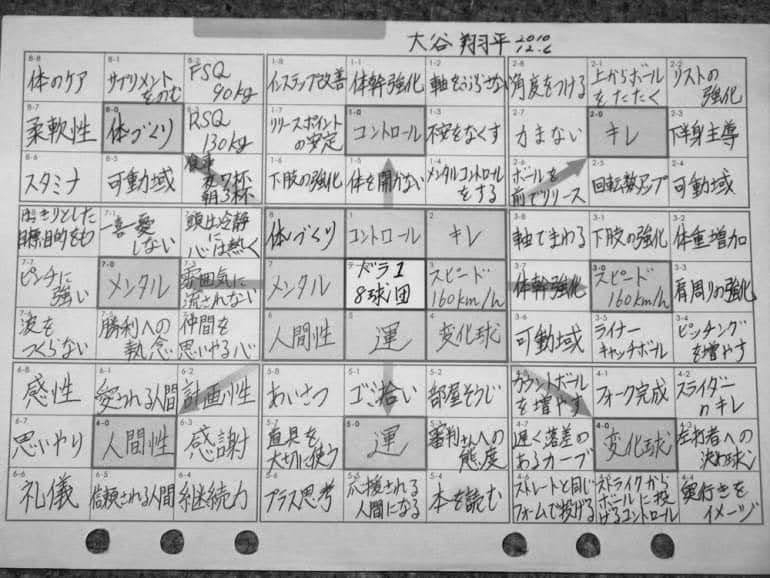 大谷翔平 2010
12.6
8-8
体のケア
8-1
サプリメント
をのむ
8-2
FSQ
90kg
1-8
インステップ改善
1-1
体幹強化
1-2
軸をぶらさない
2-8
角度をつける
2-1
上からボール
をたたく
2-2
リストの
強化
8-7
柔軟性
8-0
体づくり
8-3
RSQ
130kg
1-7
リリースポイント
の安定
1-0
コントロール
1-3
不安をなくす
2-7
力まない
2-0
キレ
2-3
下半身主導
8-6
スタミナ
8-5
可動域
食事
夜7杯
朝3杯
1-6
下肢の強化
1-5
体を開かない
1-4
メンタルコントロール
をする
2-6
ボールを
前でリリース
2-5
回転数アップ
2-4
可動域
はっきりとした
目標目的をもつ
7-1
一喜一憂
しない
頭は冷静
に
心は熱く
8
体づくり
1
コントロール
2
キレ
3-8
軸でまわる
3-1
下肢の強化
3-2
体重増加
7-7
ピンチに
強い
7-0
メンタル
7-3
雰囲気に
流されない
7
メンタル
ドラ1
8球団
3
スピード
160km/h
3-7
体幹強化
3-0
スピード
160km/h
3-3
肩周りの強化
7-6
波を
つくらない
7-5
勝利への
執念
7-4
仲間を
思いやる心
6
人間性
5
運
4
変化球
3-6
可動域
3-5
ライナー
キャッチボール
3-4
ピッチング
を増やす
6-8
感性
6-1
愛される人間
6-2
計画性
5-8
あいさつ
5-1
ゴミ拾い
5-2
部屋そうじ
4-8
カウントボール
を増やす
4-1
フォーク完成
4-2
スライダー
のキレ
6-7
思いやり
6-0
人間性
6-3
感謝
5-7
道具を
大切に使う
5-0
運
5-3
審判さんへの
態度
4-7
遅く落差の
あるカーブ
4-0
変化球
4-3
左打者への
決め球
6-6
礼儀
6-5
信頼される人間
6-4
継続力
5-6
プラス思考
5-5
応援される
人間になる
5-4
本を読む
4-6
ストレートと同じ
フォームで投げる
4-5
ストライクから
ボールに投
げるコントロール
4-4
奥行きを
イメージ